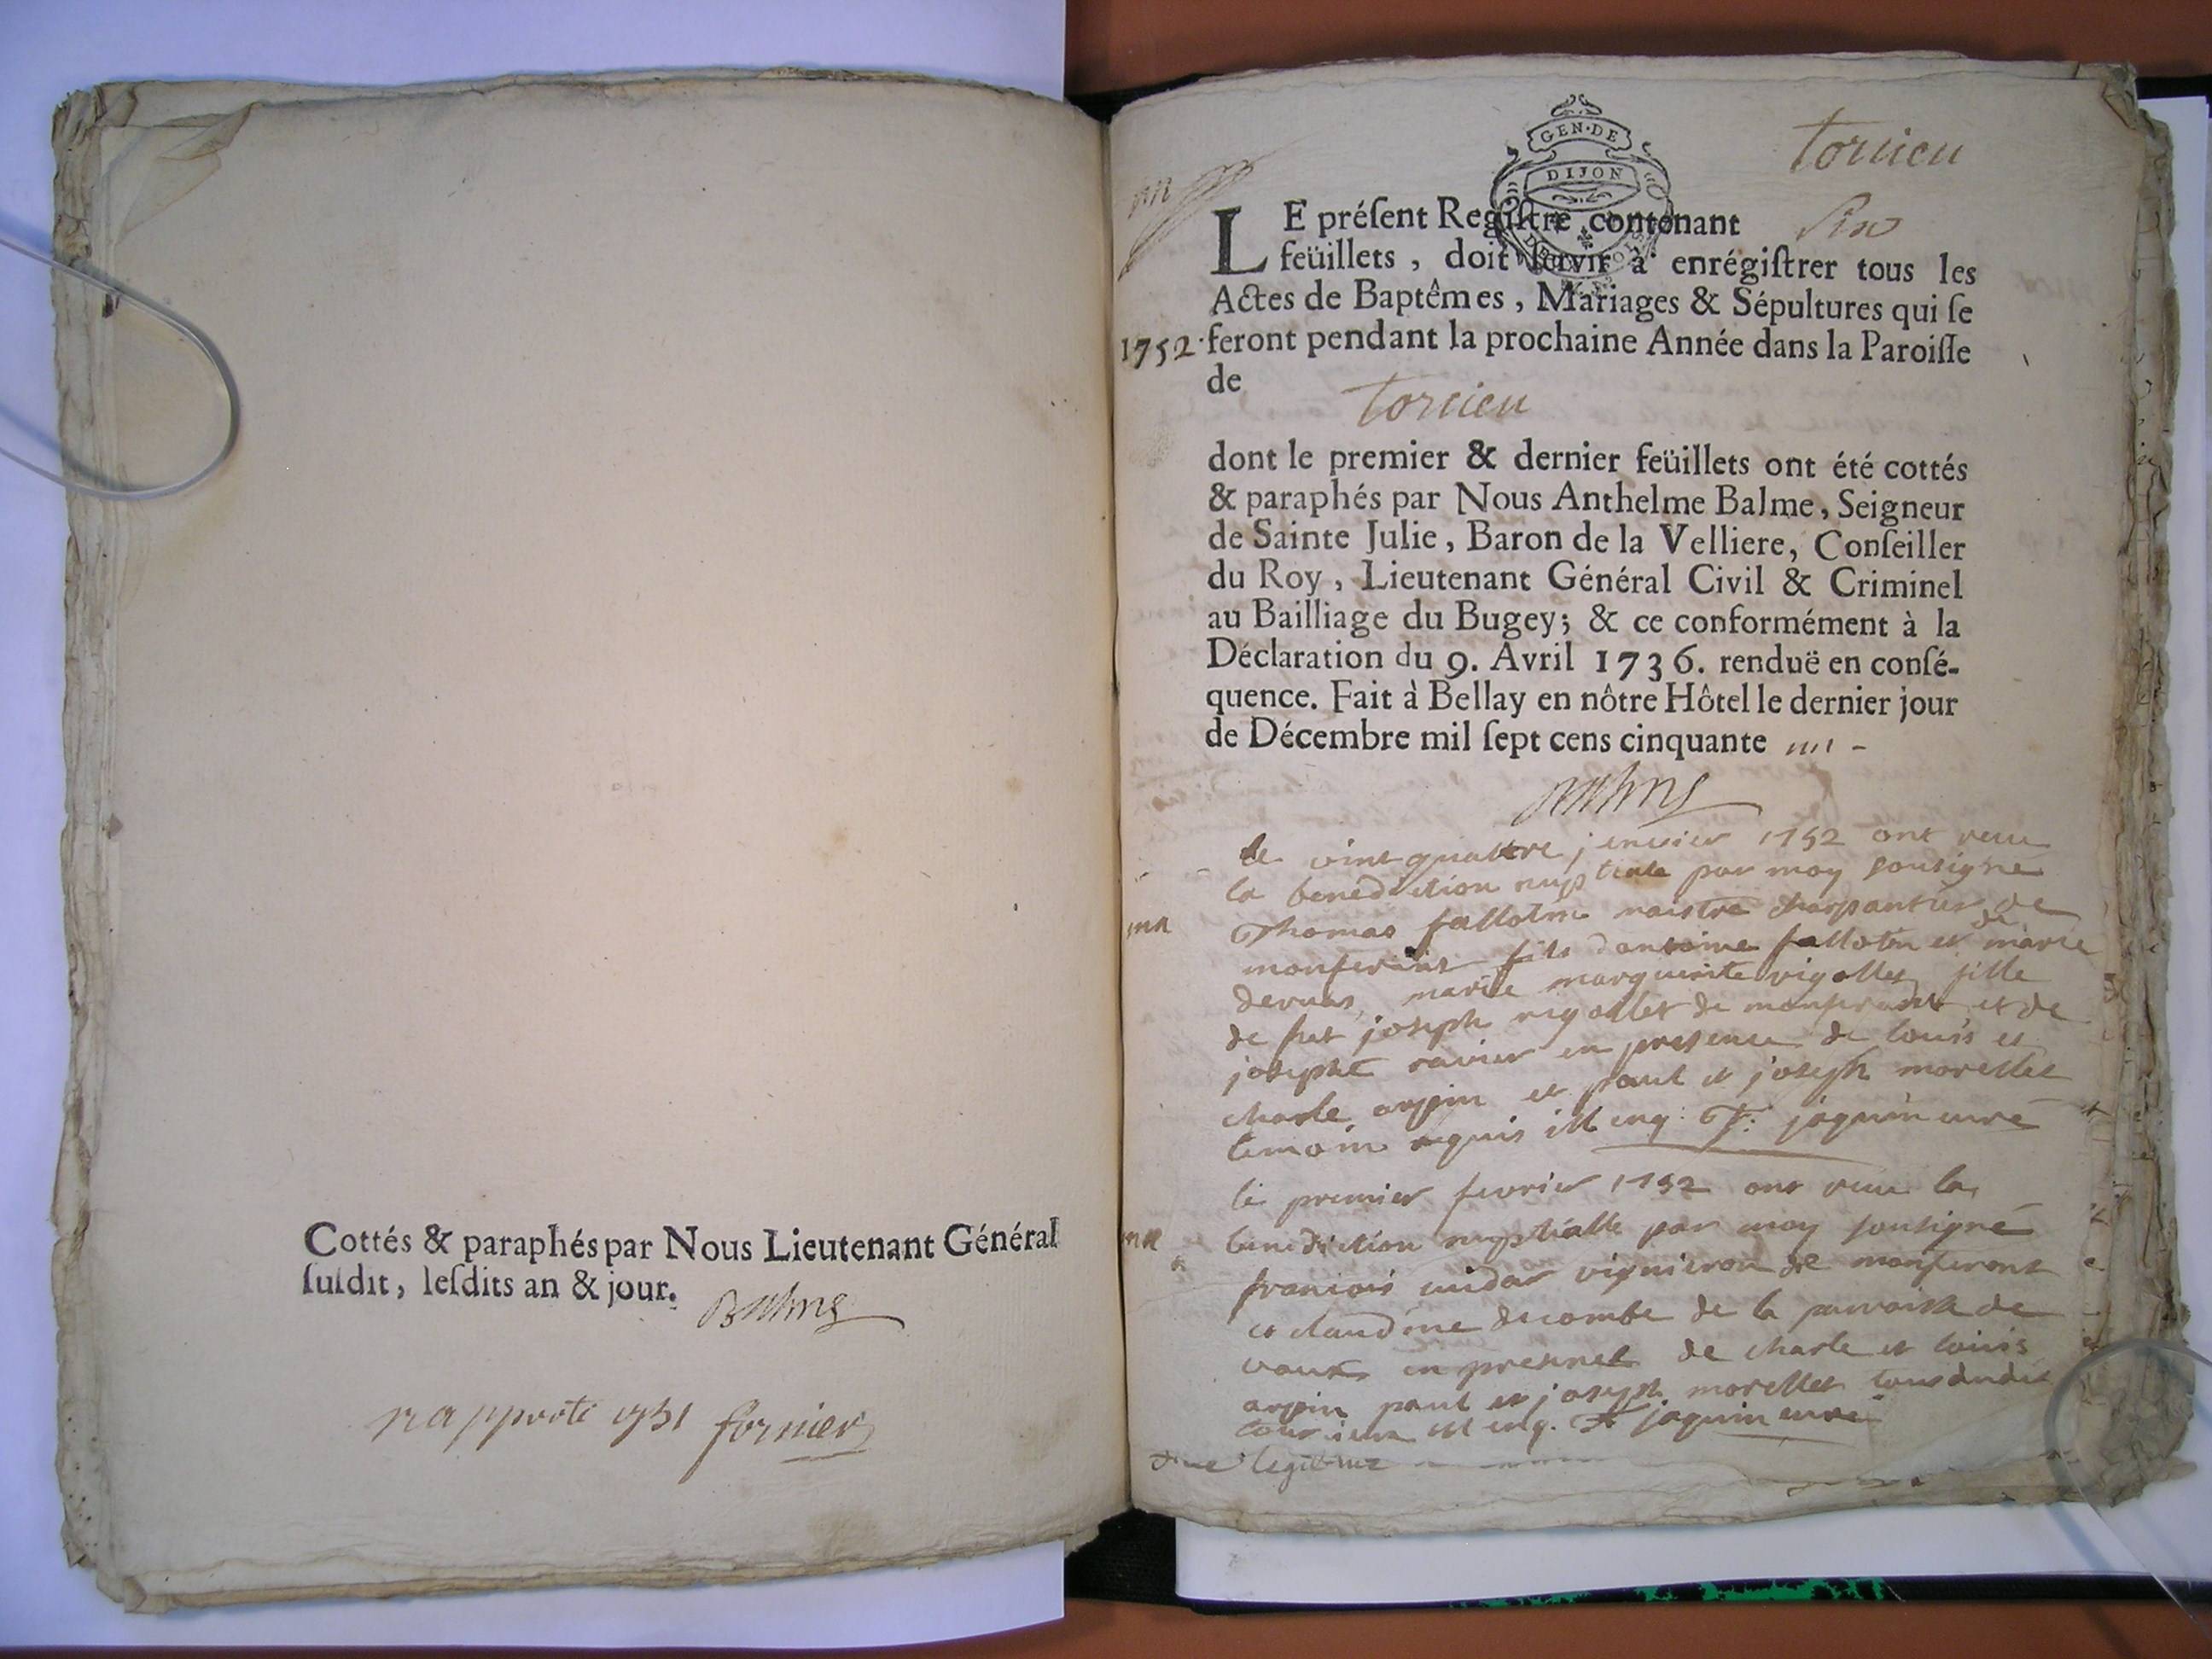 Cottés & paraphés par Nous Lieutenant Général
ſuſdit, leſdits an & jour.
Balme
rapporté 1751 fornier
GEN·DE
DIJON
torcieu
LE préſent Regiſtre contenant six
feüillets, doit ſervir à enrégiſtrer tous les
Actes de Baptêmes, Mariages & Sépultures qui ſe
1752. feront pendant la prochaine Année dans la Paroiſſe
de
torcieu
dont le premier & dernier feüillets ont été cottés
& paraphés par Nous Anthelme Balme, Seigneur
de Sainte Julie, Baron de la Velliere, Conſeiller
du Roy, Lieutenant Général Civil & Criminel
au Bailliage du Bugey; & ce conformément à la
Déclaration du 9. Avril 1736. renduë en conſé-
quence. Fait à Bellay en nôtre Hôtel le dernier jour
de Décembre mil ſept cens cinquante un -
Balme
le vint quattre jenvier 1752 ont receu
la benediction nuptiale par moy sousigné
Thomas fallotin maistre charpantier de
monferant fils dantoine fallotin et de marie
marie marguerite rigollet fille
de fut joseph rigollet de monferant et de
josephe ravier en presence de louis et
charle arpin et paul et joseph morellet
temoin requis ill enq. F. jaquin curé
le premier fevrier 1752 ont receu la
benediction nuptialle par moy sousigné
francois vigneron de monferant
et claudine decombe de la parroisse de
vaux en presence de charle et louis
arpin paul et joseph morellet tous dudit
torcieu ill enq. F jaquin curé
legitime